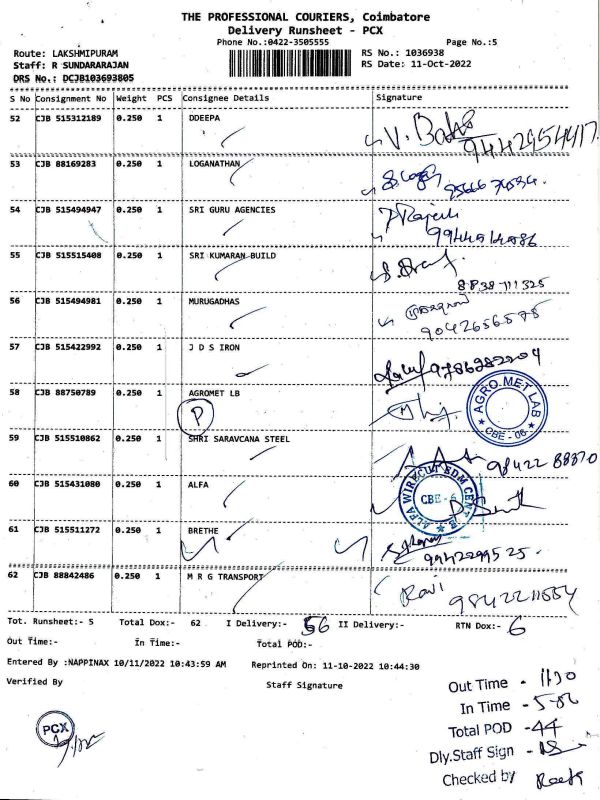 THE PROFESSIONAL COURIERS, Coimbatore
Delivery Runsheet - PCX
Phone No.:0422-3505555 Page No.:5
Route: LAKSHMIPURAM RS No.: 1036938
Staff: R SUNDARARAJAN RS Date: 11-Oct-2022
DRS No.: DCJB103693805
S No Consignment No Weight PCS Consignee Details Signature
52 CJB 515312189 0.250 1 DDEEPA
9442954417
53 CJB 88169283 0.250 1 LOGANATHAN
54 CJB 515494947 0.250 1 SRI GURU AGENCIES
55 CJB 515515408 0.250 1 SRI KUMARAN BUILD
8838711325
56 CJB 515494981 0.250 1 MURUGADHAS
9042656575
57 CJB 515422992 0.250 1 J D S IRON
58 CJB 88750789 0.250 1 AGROMET LB
P
AGRO.MET LAB
CBE - 06
59 CJB 515510862 0.250 1 SHRI SARAVCANA STEEL
98422 88370
60 CJB 515431080 0.250 1 ALFA
ALFA WIRECUT EDM CENT
CBE - 6
61 CJB 515511272 0.250 1 BRETHE
9942299525.
62 CJB 88842486 0.250 1 M R G TRANSPORT
Ravi
Tot. Runsheet:- 5 Total Dox:- 62 I Delivery:- 56 II Delivery:- RTN Dox:- 6
Out Time:- In Time:- Total POD:-
Entered By :NAPPINAX 10/11/2022 10:43:59 AM Reprinted On: 11-10-2022 10:44:30
Verified By Staff Signature
PCX
Out Time -
In Time -
Total POD - 44
Dly.Staff Sign -
Checked by